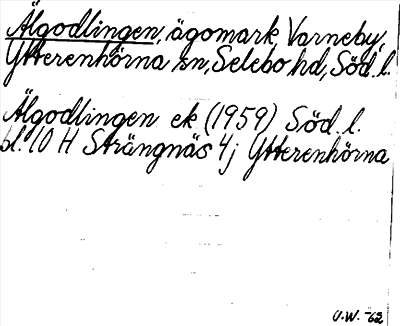 Älgodlingen, ägomark Varneby,
Ytterenhörna sn, Selebo hd, Söd. l.
Älgodlingen ek (1959) Söd. l.
bl. 10 H Strängnäs 4j Ytterenhörna
U.W. -62